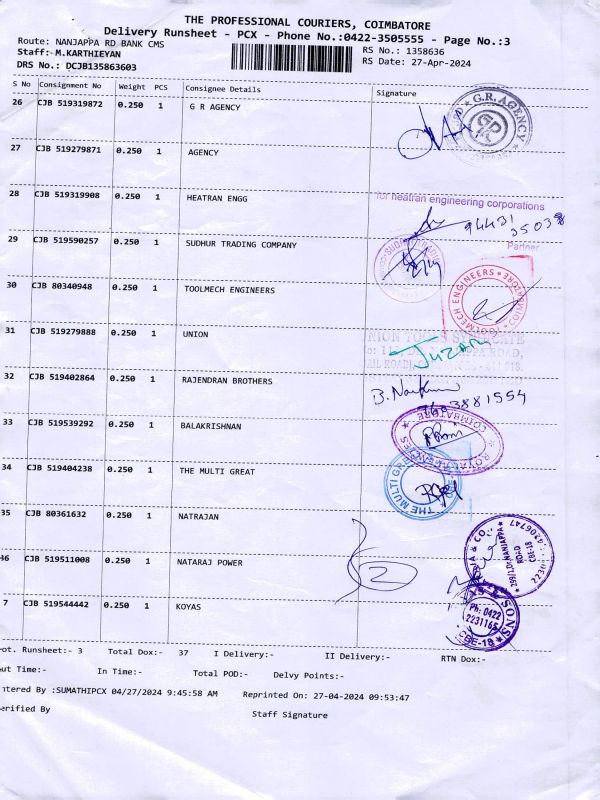 THE PROFESSIONAL COURIERS, COIMBATORE
Delivery Runsheet - PCX - Phone No.:0422-3505555 - Page No.:3
Route: NANJAPPA RD BANK CMS
RS No.: 1358636
Staff: M.KARTHIEYAN
RS Date: 27-Apr-2024
DRS No.: DCJB135863603
S No Consignment No Weight PCS Consignee Details Signature
26 CJB 519319872 0.250 1 G R AGENCY
G.R. AGENCY
27 CJB 519279871 0.250 1 AGENCY
28 CJB 519319908 0.250 1 HEATRAN ENGG
for heatran engineering corporations
94431
35038
Partner
29 CJB 519590257 0.250 1 SUDHUR TRADING COMPANY
30 CJB 80340948 0.250 1 TOOLMECH ENGINEERS
MECH ENGINEERS
31 CJB 519279888 0.250 1 UNION
32 CJB 519402864 0.250 1 RAJENDRAN BROTHERS
33 CJB 519539292 0.250 1 BALAKRISHNAN
ROYAL AGENCIES COIMBATORE
34 CJB 519404238 0.250 1 THE MULTI GREAT
THE MULTI GR
35 CJB 80361632 0.250 1 NATRAJAN
46 CJB 519511008 0.250 1 NATARAJ POWER
& CO.
ROAD
CBE-18
7 CJB 519544442 0.250 1 KOYAS
SONS
Ph: 0422
2231165
CBE-18
ot. Runsheet:- 3 Total Dox:- 37 I Delivery:- II Delivery:- RTN Dox:-
out Time:- In Time:- Total POD:- Delvy Points:-
ntered By :SUMATHIPCX 04/27/2024 9:45:58 AM Reprinted On: 27-04-2024 09:53:47
erified By Staff Signature